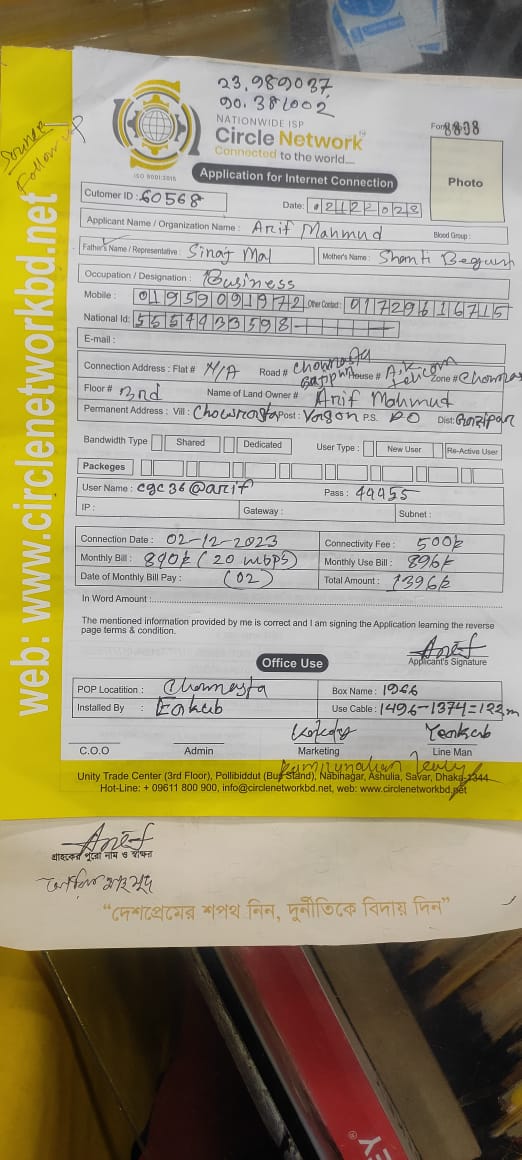 23.989037
90.381002
NATIONWIDE ISP
Circle Network
Connected to the world....
ISO 9001:2015
Form 8808
Photo
Follow up
Application for Internet Connection
Cutomer ID : 60568
Date: 02122023
Applicant Name / Organization Name : Arif Mahmud Blood Group :
Father's Name / Representative : Siraj Mal Mother's Name : Shanti Begum
Occupation / Designation : Business
Mobile : 01959091972 Other Contact : 01729616715
National Id: 5554433598
E-mail :
Connection Address : Flat # N/A Road # Chowrasta Gazipur House # A.K Telicom Zone #
Floor # 3nd Name of Land Owner # Arif Mahmud
Permanent Address : Vill : Chowrasta Post : P.S. DO Dist: Gazipur
Bandwidth Type Shared Dedicated User Type : New User Re-Active User
Packeges
User Name : cgc36@arif Pass : 44955
IP : Gateway : Subnet :
Connection Date : 02-12-2023 Connectivity Fee : 500tk
Monthly Bill : (20 mbps) Monthly Use Bill : 896tk
Date of Monthly Bill Pay : (02) Total Amount : 1396tk
In Word Amount :
The mentioned information provided by me is correct and I am signing the Application learning the reverse
page terms & condition.
Applicant's Signature
Office Use
POP Locatition : Chowrasta Box Name : 1966
Installed By : Eakub Use Cable : 1496-1374=122m
Yeakub
C.O.O Admin Marketing Line Man
Unity Trade Center (3rd Floor), Pollibiddut (Bus Stand), Nabinagar, Ashulia, Savar, Dhaka-1344
Hot-Line: + 09611 800 900, info@circlenetworkbd.net, web: www.circlenetworkbd.net
web: www.circlenetworkbd.net
গ্রাহকের পুরো নাম ও স্বাক্ষর
আরিফ মাহমুদ
“দেশপ্রেমের শপথ নিন, দুর্নীতিকে বিদায় দিন”